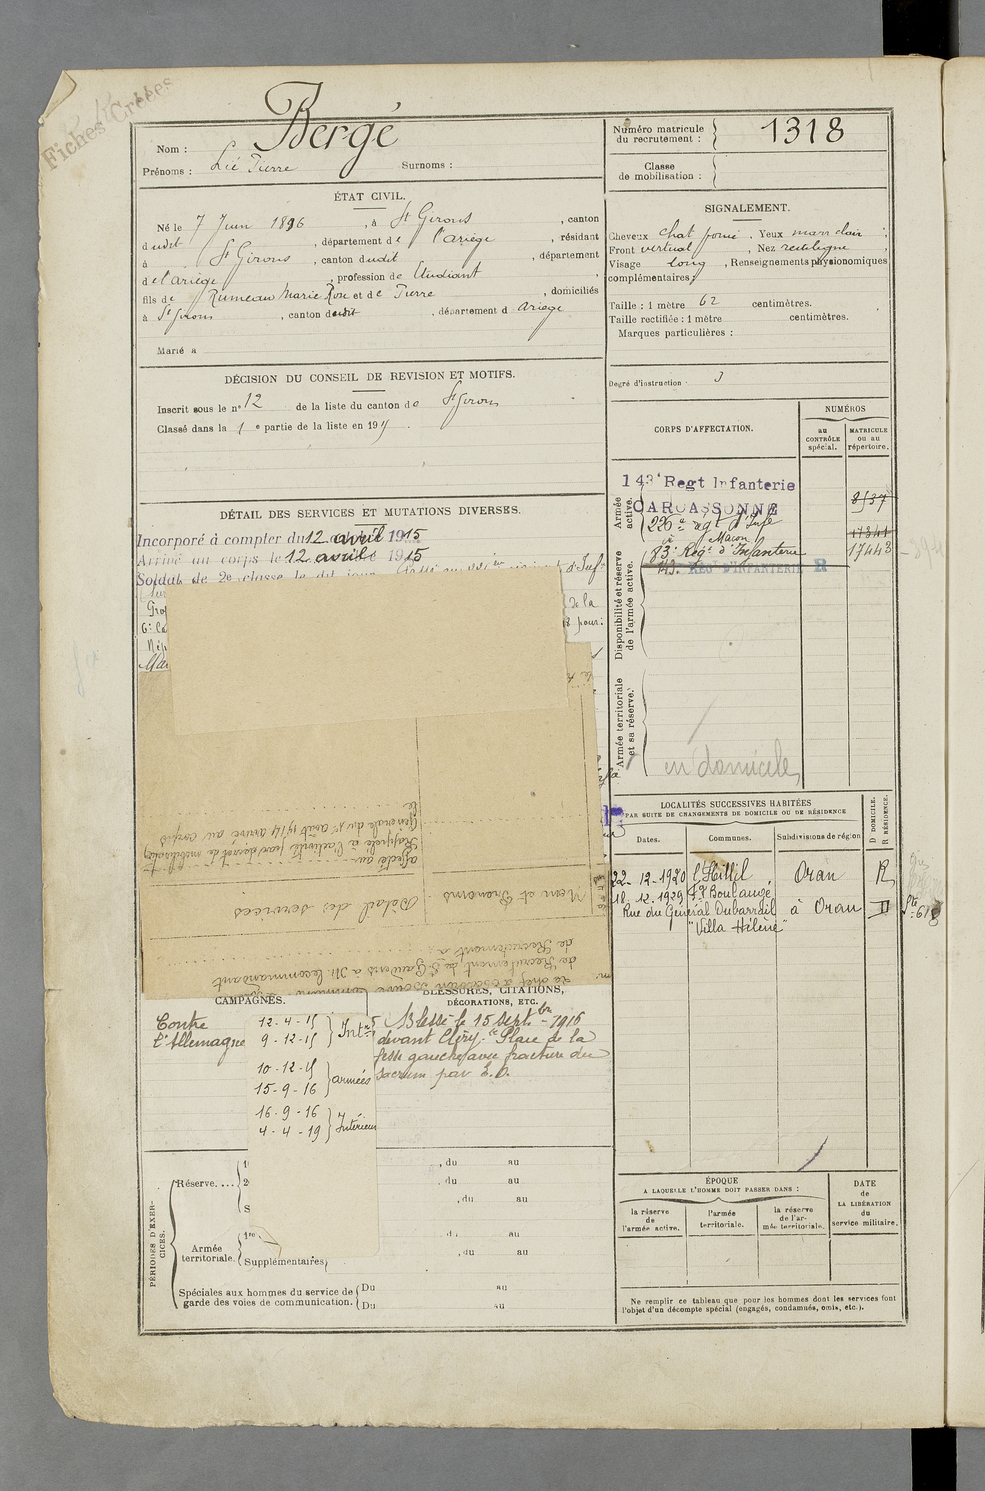 Fiches Créées
Nom : Bergé
Prénoms : Pierre Surnoms :
ÉTAT CIVIL.
Né le 7 Juin 1896, à St Girons, canton
dudit St Girons, département de l'Ariège, résidant
à St Girons, canton dudit, département
de l'Ariège, profession de Etudiant
fils de Rumeau Marie Rose et de Pierre, domiciliés
à St Girons, canton dudit, département d Ariège
Marié à
DÉCISION DU CONSEIL DE REVISION ET MOTIFS.
Inscrit sous le n° 12 de la liste du canton de St Girons
Classé dans la 1e partie de la liste en 191
DÉTAIL DES SERVICES ET MUTATIONS DIVERSES.
Incorporé à compter du 12 avril 1915
Arrivé au corps le 12 avril 1915
Soldat de 2e classe le dit jour. d'Inf
de la
pour
le
Générale du 1er août 1914 arrivé au corps
Rappelé à l'activité par décret de mobilisation
affecté au
Nom et Prénoms
Détail des services
de Recrutement à
de Recrutement de St Gaudens à M. le commandant
CAMPAGNES.
Contre
l'Allemagne
12-4-15
9-12-15
10-12-15
15-9-16
armées
16-9-16
4-4-19
Intérieur
BLESSURES, CITATIONS,
DÉCORATIONS, ETC.
Blessé le 15 Septbre 1916
devant Cléry. Plaie de la
fesse gauche avec fracture du
sacrum par E.O.
PÉRIODES D'EXERCICES.
Réserve....
, du au
, du au
, du au
Armée
territoriale.
1re
Supplémentaires
du au
, du au
Spéciales aux hommes du service de
garde des voies de communication.
Du au
Du au
Numéro matricule
du recrutement : 1318
Classe
de mobilisation :
SIGNALEMENT.
Cheveux chat foncé. Yeux marr clair
Front vertical, Nez rectiligne
Visage long, Renseignements physionomiques
complémentaires :
Taille : 1 mètre 62 centimètres.
Taille rectifiée : 1 mètre centimètres.
Marques particulières :
Degré d'instruction : 3
CORPS D'AFFECTATION.
NUMÉROS
au
CONTRÔLE
spécial.
MATRICULE
ou au
répertoire.
Armée
active.
143e Regt Infanterie
CARCASSONNE
8537
226e rgt d'Infie
17341
83e Regt d'Infanterie
17443
143. REGt D'INFANTERIE R
Disponibilité et réserve
de l'armée active.
Armée territoriale
et sa réserve.
en domicile
LOCALITÉS SUCCESSIVES HABITÉES
PAR SUITE DE CHANGEMENTS DE DOMICILE OU DE RÉSIDENCE
Dates.
Communes.
Subdivisions de région
D DOMICILE.
R RÉSIDENCE.
22-12-1920 l'Hillil Oran R
18.12.1929 Bd Boulangé
Rue du Général Dubarrail à Oran D
"Villa Hélène"
ÉPOQUE
A LAQUELLE L'HOMME DOIT PASSER DANS :
la réserve
de
l'armée active.
l'armée
territoriale.
la réserve
de l'ar-
mée territoriale.
DATE
de
LA LIBÉRATION
du
service militaire.
Ne remplir ce tableau que pour les hommes dont les services font
l'objet d'un décompte spécial (engagés, condamnés, omis, etc.).